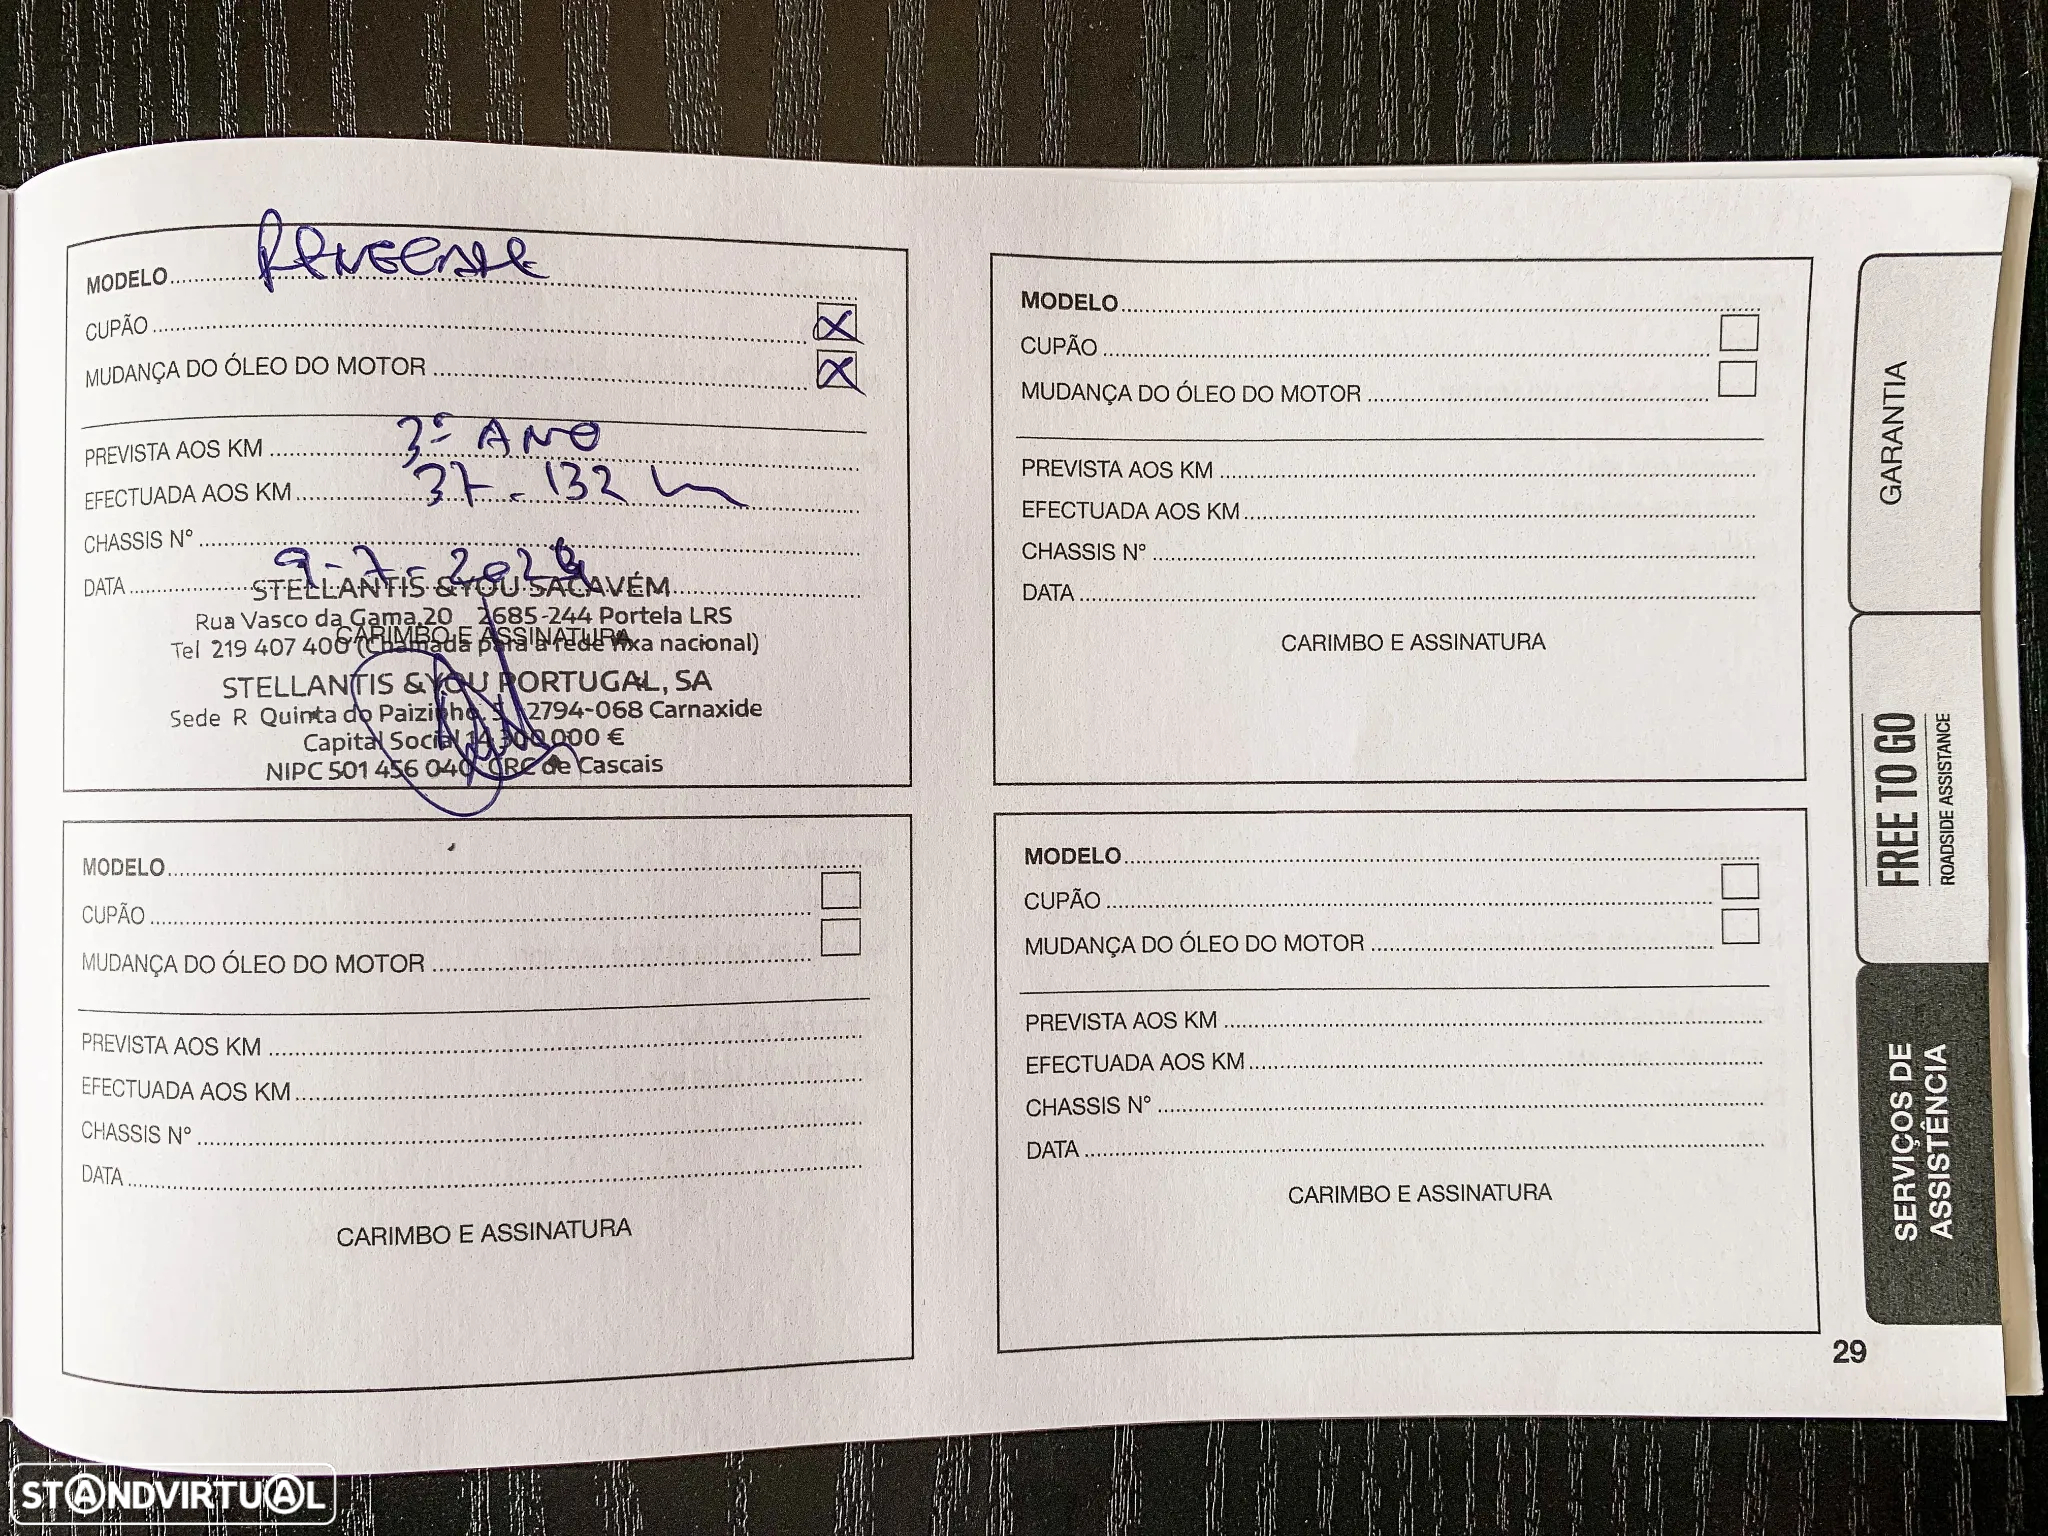 MODELO
CUPÃO X
MUDANÇA DO ÓLEO DO MOTOR X
PREVISTA AOS KM 3º ANO
EFECTUADA AOS KM 37.132
CHASSIS Nº
DATA 9-7-2024
STELLANTIS &YOU SACAVÉM
Rua Vasco da Gama,20 2685-244 Portela LRS
CARIMBO E ASSINATURA
Tel 219 407 400 (Chamada para a rede fixa nacional)
STELLANTIS &YOU PORTUGAL, SA
Sede R Quinta do Paizinho, 5 2794-068 Carnaxide
Capital Social 14.300.000 €
NIPC 501 456 040 CRC de Cascais
MODELO
CUPÃO
MUDANÇA DO ÓLEO DO MOTOR
PREVISTA AOS KM
EFECTUADA AOS KM
CHASSIS Nº
DATA
CARIMBO E ASSINATURA
MODELO
CUPÃO
MUDANÇA DO ÓLEO DO MOTOR
PREVISTA AOS KM
EFECTUADA AOS KM
CHASSIS Nº
DATA
CARIMBO E ASSINATURA
MODELO
CUPÃO
MUDANÇA DO ÓLEO DO MOTOR
PREVISTA AOS KM
EFECTUADA AOS KM
CHASSIS Nº
DATA
CARIMBO E ASSINATURA
GARANTIA
FREE TO GO
ROADSIDE ASSISTANCE
SERVIÇOS DE
ASSISTÊNCIA
29
STANDVIRTUAL